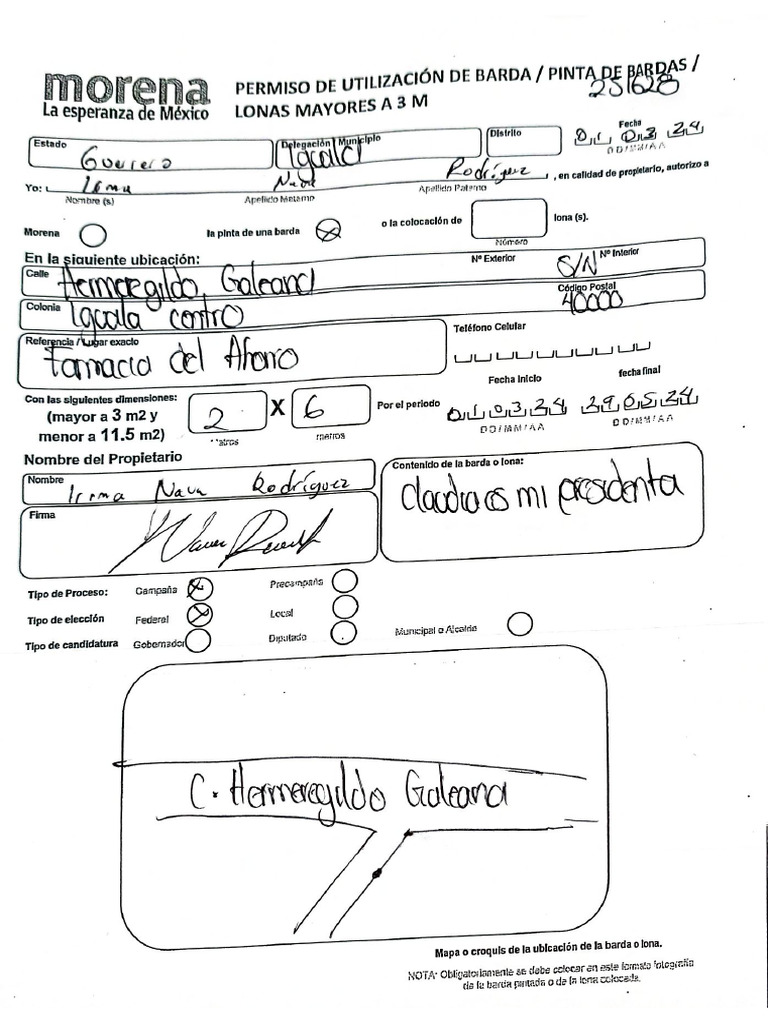 morena
La esperanza de México
PERMISO DE UTILIZACIÓN DE BARDA / PINTA DE BARDAS /
LONAS MAYORES A 3 M
251628
Estado
Guerrero
Delegación / Municipio
Iguala
Distrito
Fecha
01 03 24
DD/MM/AA
Yo: Irma Nava Rodríguez, en calidad de propietario, autorizo a
Nombre (s) Apellido Materno Apellido Paterno
Morena la pinta de una barda X o la colocación de lona (s).
Número
En la siguiente ubicación:
Calle Hermeregildo Galeana Nº Exterior S/N Nº Interior
Colonia Iguala centro Código Postal 40000
Referencia / Lugar exacto
Farmacia del Ahorro
Teléfono Celular
Con las siguientes dimensiones:
(mayor a 3 m2 y
menor a 11.5 m2)
2 X 6
metros metros
Por el periodo
Fecha Inicio fecha final
010324 290524
DD/MM/AA DD/MM/AA
Nombre del Propietario
Nombre Irma Nava Rodríguez
Firma
Contenido de la barda o lona:
Claudia es mi presidenta
Tipo de Proceso: Campaña X Precampaña
Tipo de elección Federal X Local
Tipo de candidatura Gobernador Diputado Municipal o Alcalde
C. Hermeregildo Galeana
Mapa o croquis de la ubicación de la barda o lona.
NOTA: Obligatoriamente se debe colocar en este formato fotografía
de la barda pintada o de la lona colocada.